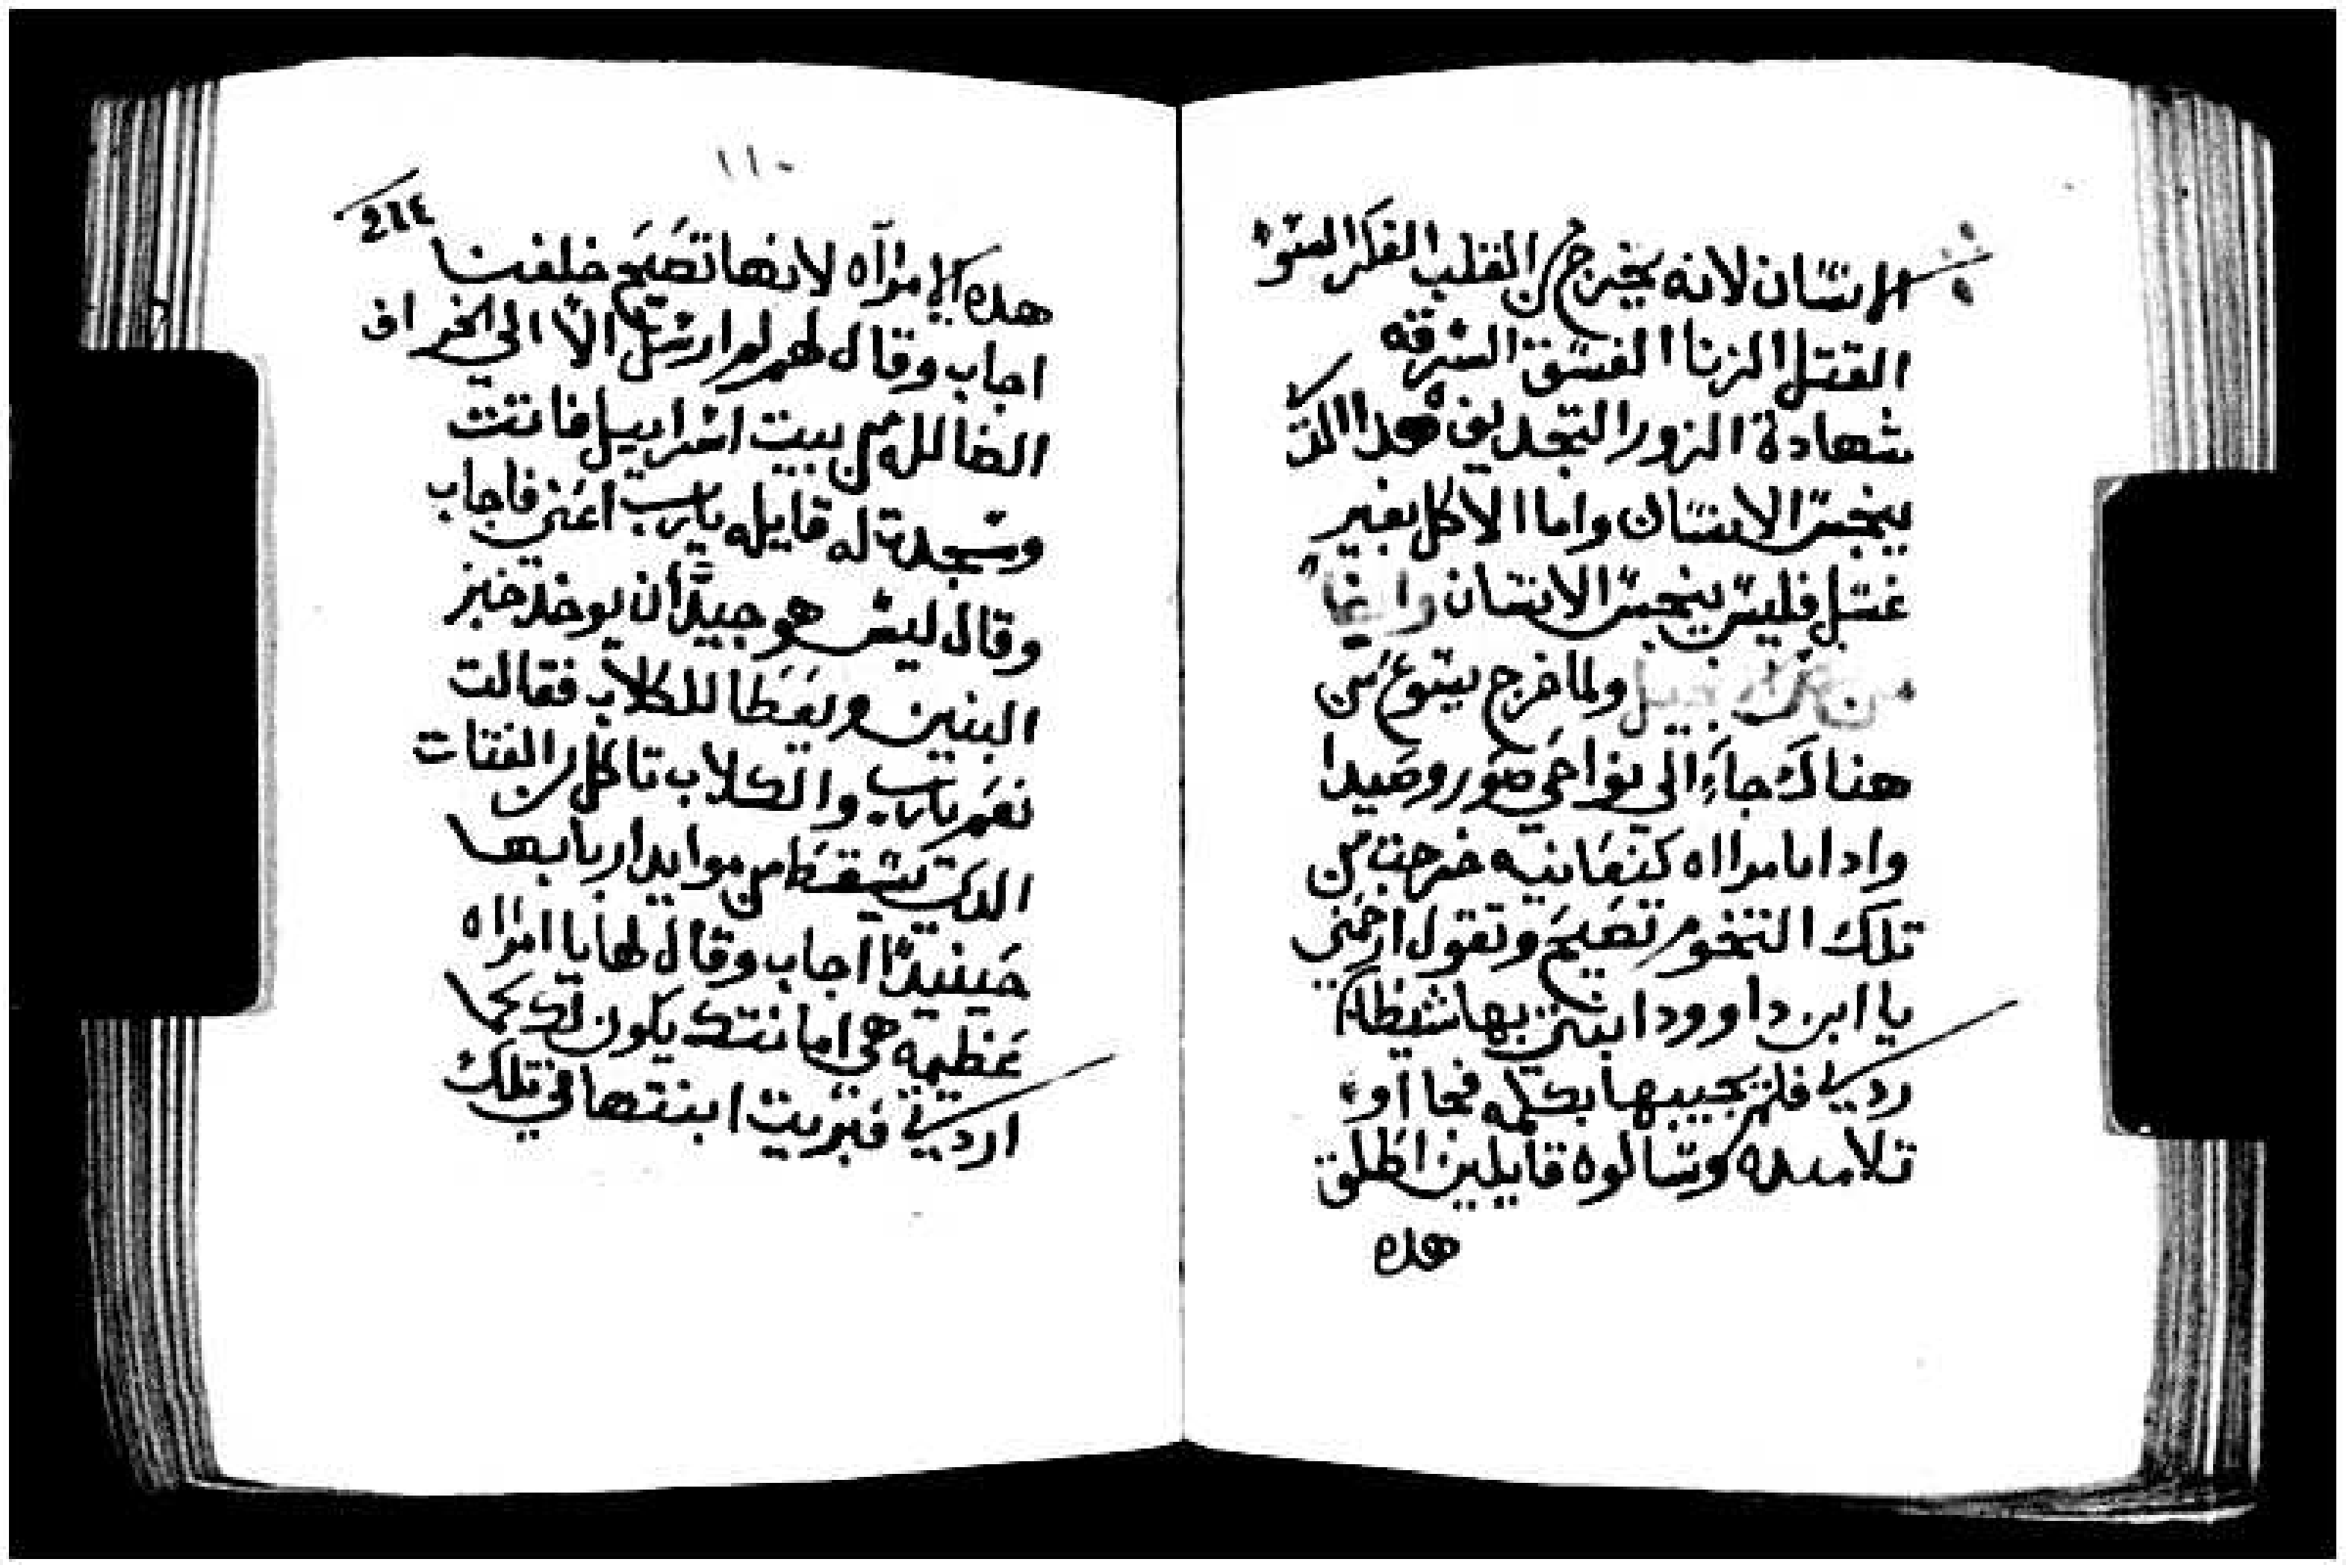 الانسان لانه يخرج من القلب الفكر السو
القتل الزنا الفسق السرقه
شهادة الزور التجديف هدا الدي
ينجس الانسان واما الاكل بغير
غسل فليس ينجس الانسان وايضا
من انجيل ولما خرج يسوع من
هناك جاء الى نواحي صور وصيدا
وادا بامرااه كنعانيه خرجت من
تلك التخوم تصيح وتقول ارحمني
يا ابن داوود ابنتي بها شيطان
ردي فلم يجيبها بكلمه فجااو
تلاميده وسالوه قايلين اطلق
هده
١١٠
هده الامرآه لانها تصيح خلفنا
اجاب وقال لهم لم ارسل الا الى الخراف
الضالله من بيت اسراييل فاتت
وسجدة له قايله يارب اعني فاجاب
وقال ليس هو جيدًا ان يوخد خبز
البنين ويعطا للكلاب فقالت
نعم يارب والكلاب تاكل من الفتات
الدي يسقط من موايد اربابها
حينيدًا اجاب وقال لها يا امراه
عظيمه هي امانتك يكون لك كما
اردتي فبريت ابنتها في تلك